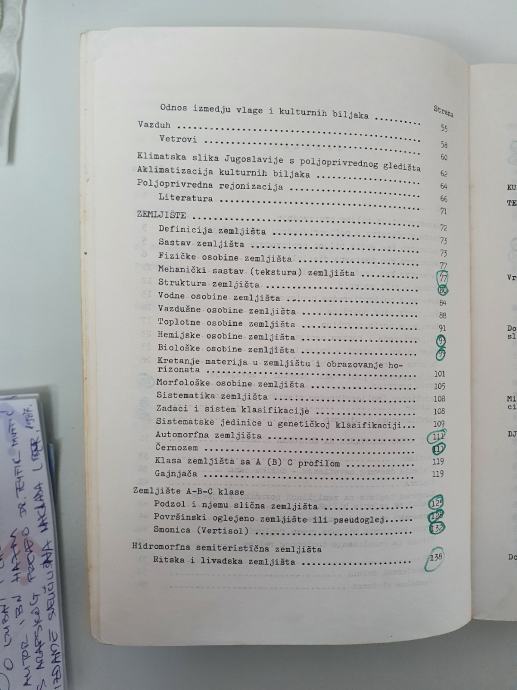 Strana
Odnos izmedju vlage i kulturnih biljaka .......... 55
Vazduh ........................................ 58
Vetrovi ..................................... 60
Klimatska slika Jugoslavije s poljoprivrednog gledišta 62
Aklimatizacija kulturnih biljaka ................ 64
Poljoprivredna rejonizacija ..................... 66
Literatura .................................. 71
ZEMLJIŠTE ..................................... 72
Definicija zemljišta ........................ 73
Sastav zemljišta ............................ 73
Fizičke osobine zemljišta ................... 77
Mehanički sastav (tekstura) zemljišta ........... 77
Struktura zemljišta ......................... 80
Vodne osobine zemljišta ..................... 84
Vazdušne osobine zemljišta .................. 88
Toplotne osobine zemljišta .................. 91
Hemijske osobine zemljišta ..................
Biološke osobine zemljišta ..................
Kretanje materija u zemljištu i obrazovanje ho-
rizonata .................................... 101
Morfološke osobine zemljišta ................ 105
Sistematika zemljišta ....................... 108
Zadaci i sistem klasifikacije ............... 108
Sistematske jedinice u genetičkoj klasifikaciji... 109
Automorfna zemljišta ........................ 111
Černozem .................................... 112
Klasa zemljišta sa A (B) C profilom ......... 119
Gajnjača .................................... 119
Zemljište A-B-C klase
Podzol i njemu slična zemljišta ............. 125
Površinski oglejeno zemljište ili pseudoglej.....
Smonica (Vertisol) .......................... 135
Hidromorfna semiteristična zemljišta
Ritska i livadska zemljišta ................. 138